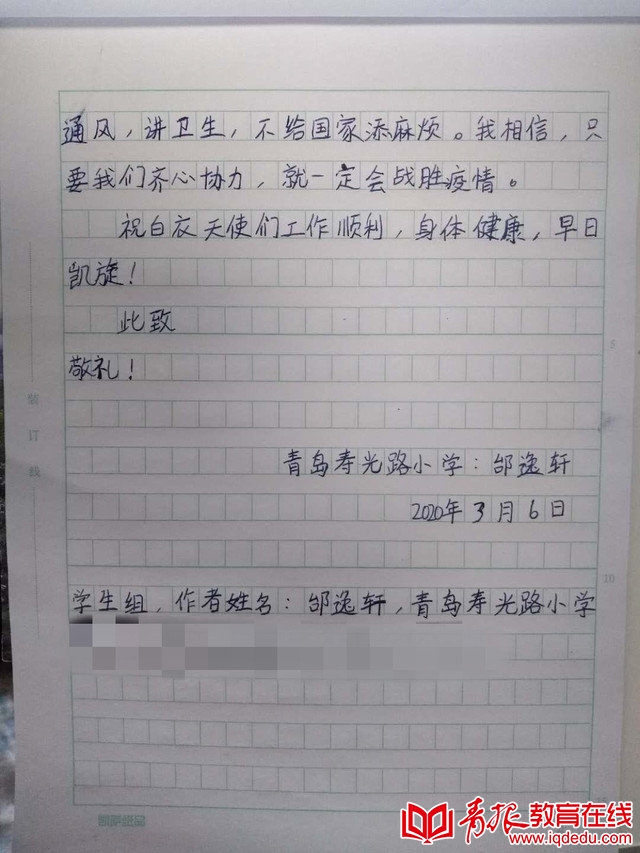 通风，讲卫生，不给国家添麻烦。我相信，只
要我们齐心协力，就一定会战胜疫情。
祝白衣天使们工作顺利，身体健康，早日
凯旋！
此致
敬礼！
5
装
订
线
青岛寿光路小学：邰逸轩
2020年3月6日
10
学生组，作者姓名：邰逸轩，青岛寿光路小学
青报教育在线
www.iqdedu.com